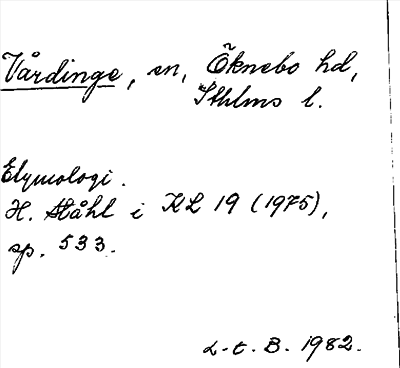 Vårdinge, sn, Öknebo hd,
Sthlms l.
Etymologi.
H. Ståhl i KL 19 (1975),
sp. 533.
L-t. B. 1982.